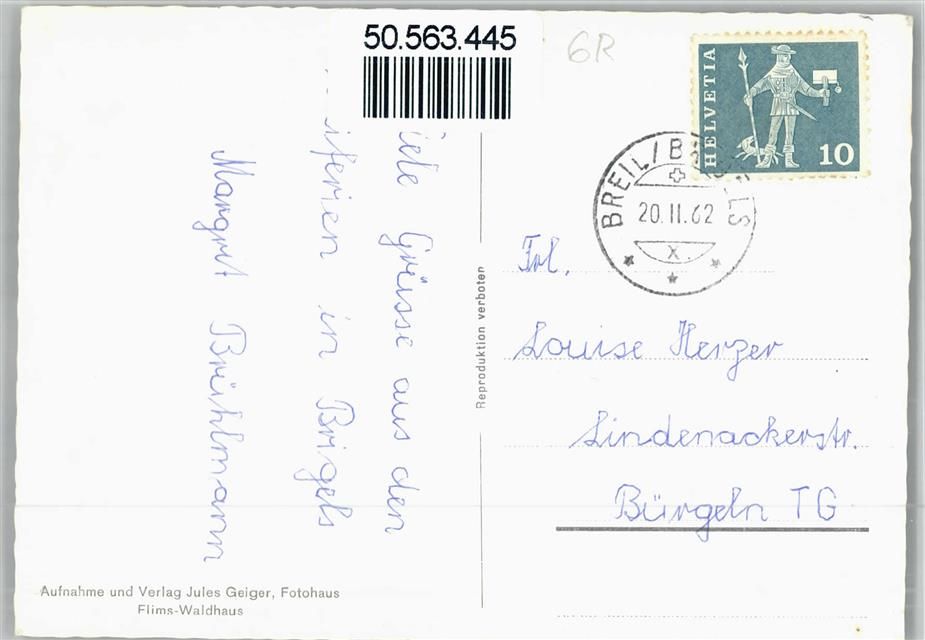 50.563.445
6R
HELVETIA
10
BREIL/BRIGELS
20.II.62
X
iele Grüsse aus den
iferien in Brigels
Margrit Brühlmann
Reproduktion verboten
Frl.
Louise Herzer
Lindenackerstr.
Bürgeln TG
Aufnahme und Verlag Jules Geiger, Fotohaus
Flims-Waldhaus